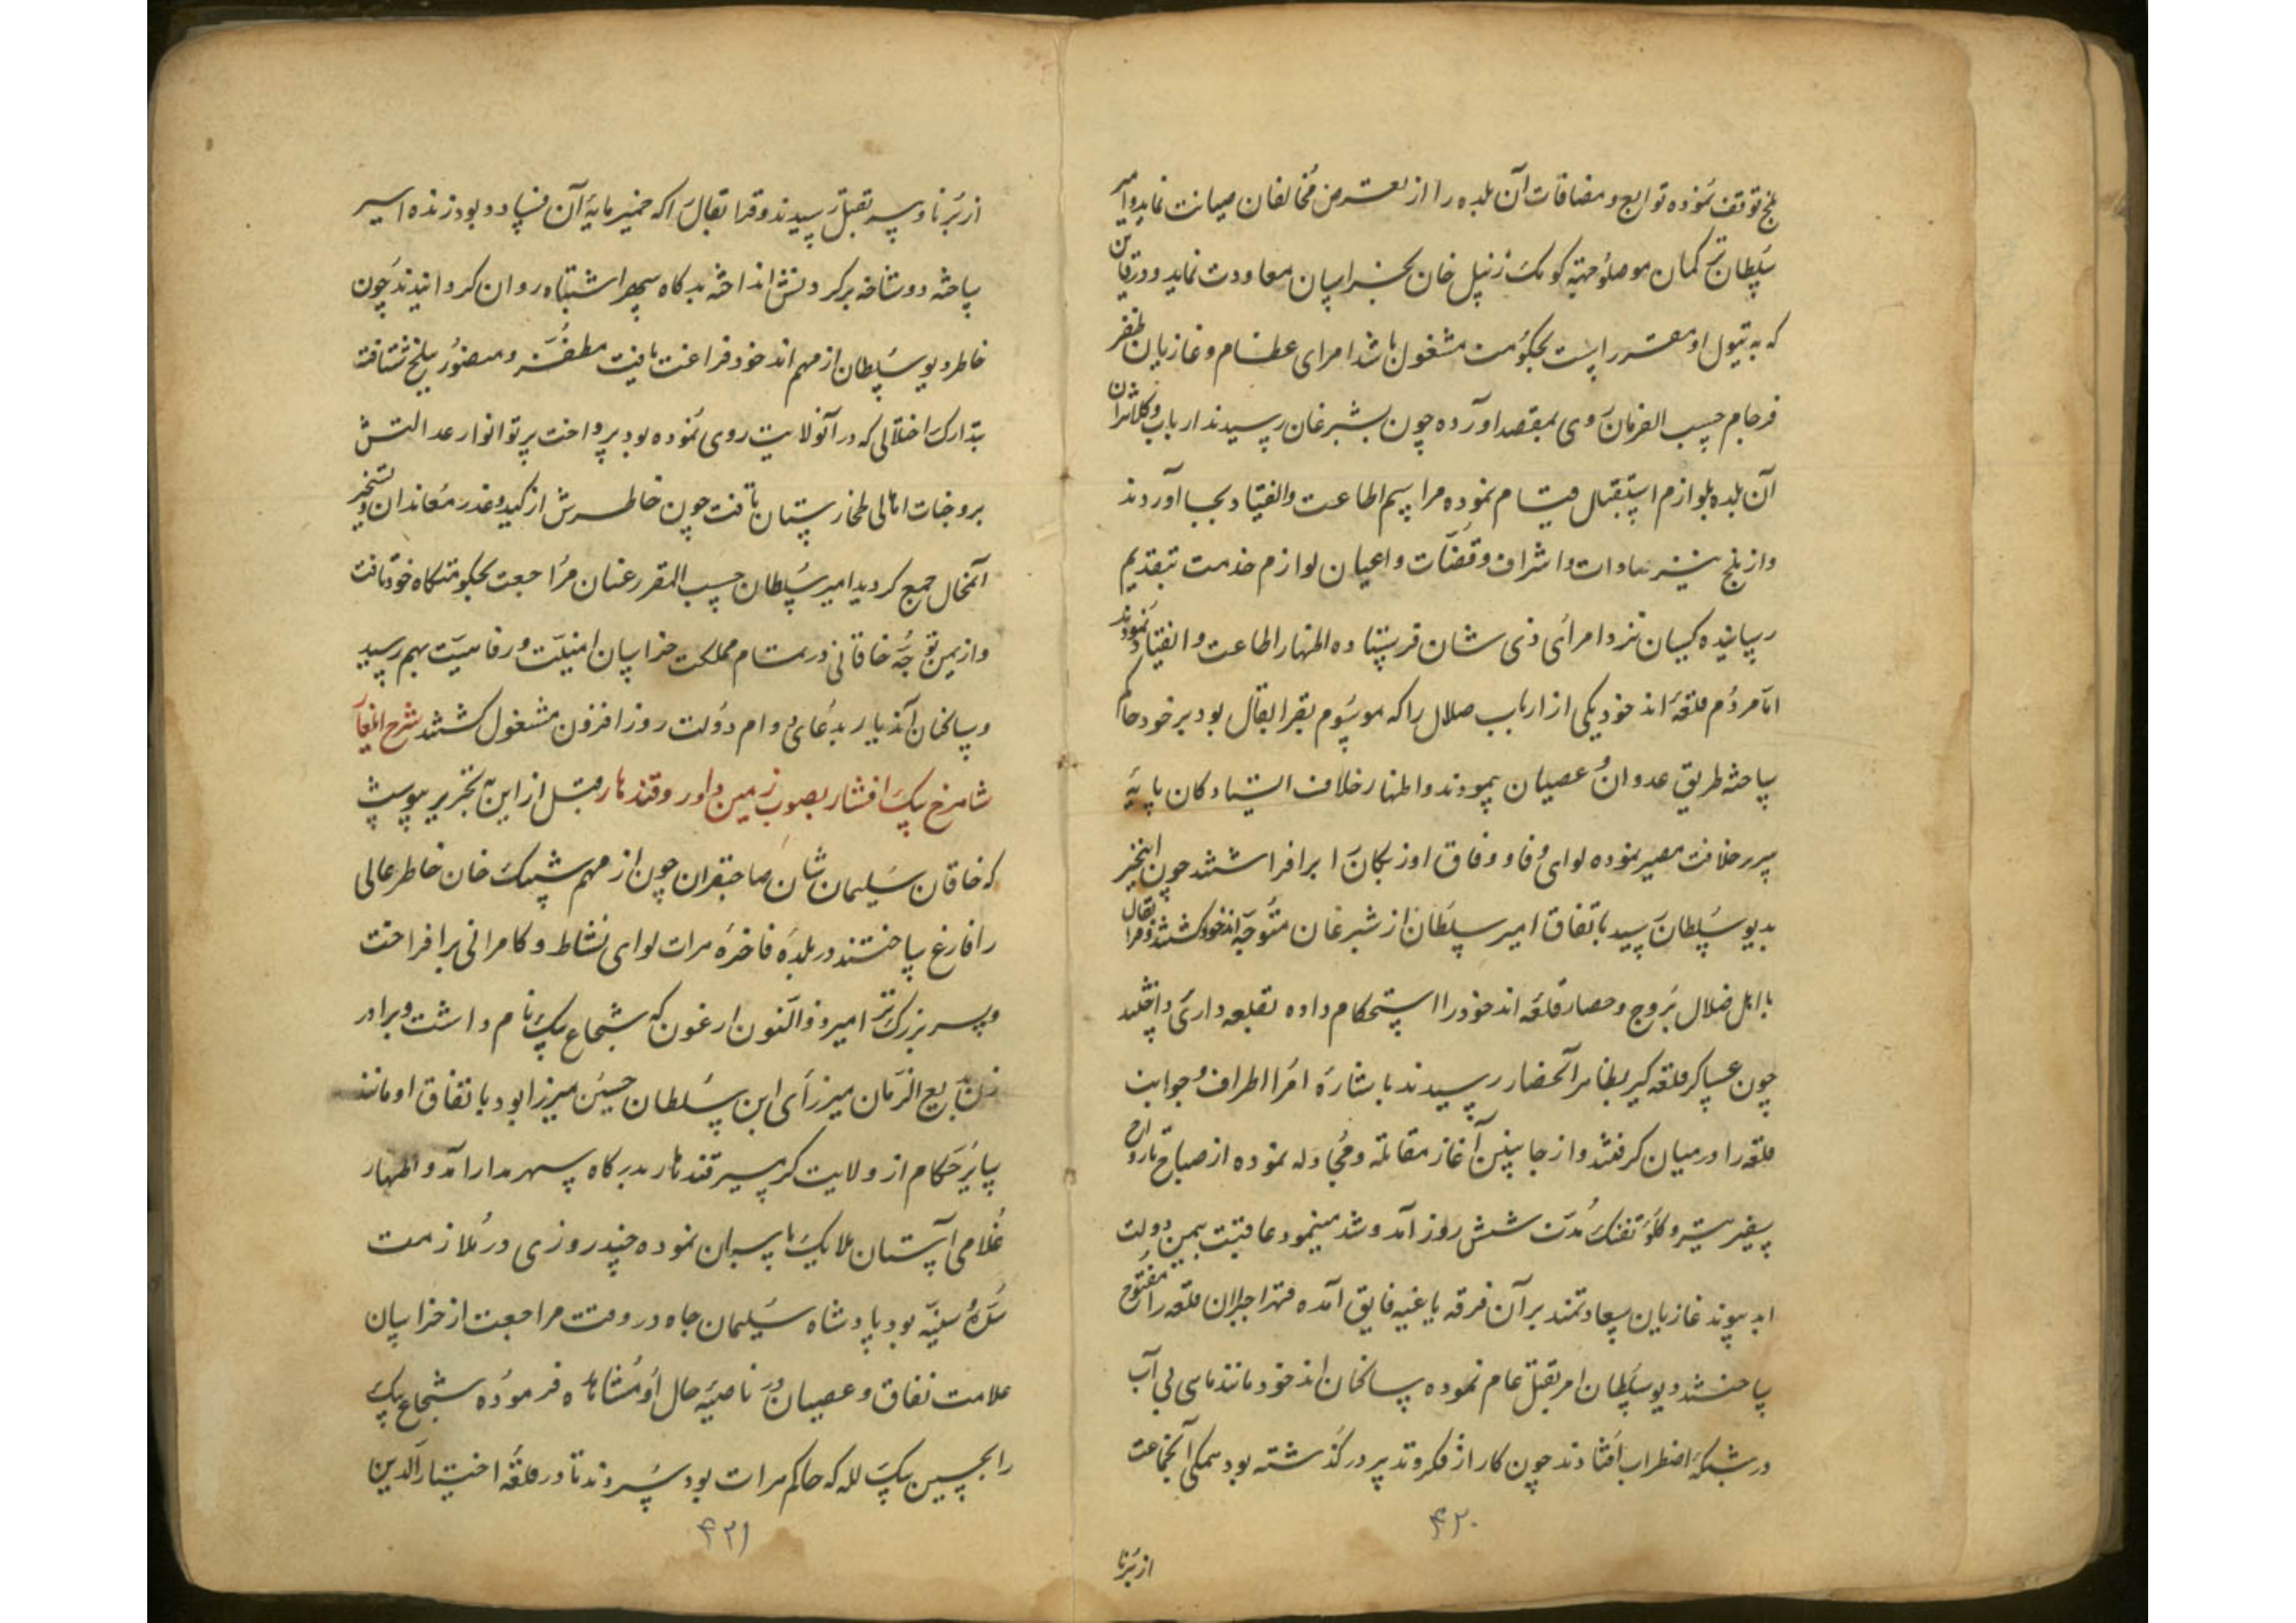 بلخ توقف نموده توابع و مضافات آن بلده را از تعرض مخالفان صیانت نماید و امیر
سلطان ترکمان موصلو جهته کومک زنپل خان بخراسان معاودت نماید و در قاین
که به تیول او مقرر است بحکومت مشغول باشد امرای عظام و غازیان ظفر
فرجام حسب الفرمان روی بمقصد آورده چون بشبرغان رسیدند ارباب و کلانتران
آن بلده بلوازم استقبال قیام نموده مراسم اطاعت و انقیاد بجا آوردند
و از بلخ نیز سادات و اشراف و قضات و اعیان لوازم خدمت بتقدیم
رسانیده کسان نزد امرای ذی شان فرستاده اظهار اطاعت و انقیاد نمودند
اما مردم قلعهٔ اندخود یکی از ارباب ضلال را که موسوم بقرا بقال بود بر خود حاکم
ساخته طریق عدوان و عصیان پیمودند و اظهار خلاف ایستادگان پایهٔ
سریر خلافت مصیر نموده لوای وفا و وفاق اوزبکان را برافراشتند چون اینخبر
بدیو سلطان رسید باتفاق امیر سلطان از شبرغان متوجه اندخود گشتند و قرا بقال
با اهل ضلال بروج و حصار قلعه اندخود را استحکام داده بقلعه داری
چون عساکر قلعه گیر بظاهر آنحصار رسیدند باشارهٔ امرا اطراف و جوانب
قلعه را در میان گرفتند و از جانبین آغاز مقاتله و مجادله نموده از صباح تا رواح
سفیر تیر و گلؤ تفنک مدت شش روز آمد و شد مینمود عاقبت بیمن دولت
ابد پیوند غازیان سعادتمند بر آن فرقه یاغیه فایق آمده قهرا جبرا آن قلعه را مفتوح
ساختند دیو سلطان امر بقتل عام نموده ساکنان اندخود مانند ماهی بی آب
در شبکهٔ اضطراب افتادند چون کار از فکر و تدبیر درگذشته بود همگی آنجماعت
۴۲۰
از برنا
از برنا و پیر بقتل رسیدند و قرا بقال را که خمیر مایهٔ آن فساد بود زنده اسیر
ساخته دو شاخه بر گردنش انداخته بدرگاه سپهر اشتباه روان گردانیدند چون
خاطر دیو سلطان از مهم اندخود فراغت یافت مظفر و منصور ببلخ شتافت
بتدارک اختلالی که در آنولایت روی نموده بود پرداخت پرتو انوار عدالتش
بر وجنات اهالی طخارستان تافت چون خاطرش از کید و غدر معاندان و تسخیر
آنمحال جمع گردید امیر سلطان حسب المقرر عنان مراجعت بحکومتگاه خود تافت
و از یمن توجه خاقانی در تمام مملکت خراسان امنیت و رفاهیت بهم رسید
و ساکنان آندیار بدعای دوام دولت روز افزون مشغول گشتند شرح ایلغار
شاهرخ بیک افشار بصوب زمین داور و قندهار قبل از این به تحریر پیوست
که خاقان سلیمان شان صاحبقران چون از مهم شیبک خان خاطر عالی
را فارغ ساختند در بلدهٔ فاخرهٔ هرات لوای نشاط و کامرانی برافراخت
و پسر بزرگ تر امیر ذوالنون ارغون که شجاع بیک نام داشت و برادر
زن بدیع الزمان میرزای ابن سلطان حسین میرزا بود باتفاق او مانند
سایر حکام از ولایت گرمسیر قندهار بدرگاه سپهر مدار آمد و اظهار
غلامی آستان ملایک پاسبان نموده چند روزی در ملازمت
سدهٔ سنیه بود پادشاه سلیمان جاه در وقت مراجعت از خراسان
علامت نفاق و عصیان در ناصیهٔ حال او مشاهده فرموده شجاع بیک
را بحسین بیک لله که حاکم هرات بود سپردند تا در قلعهٔ اختیار الدین
۴۲۱